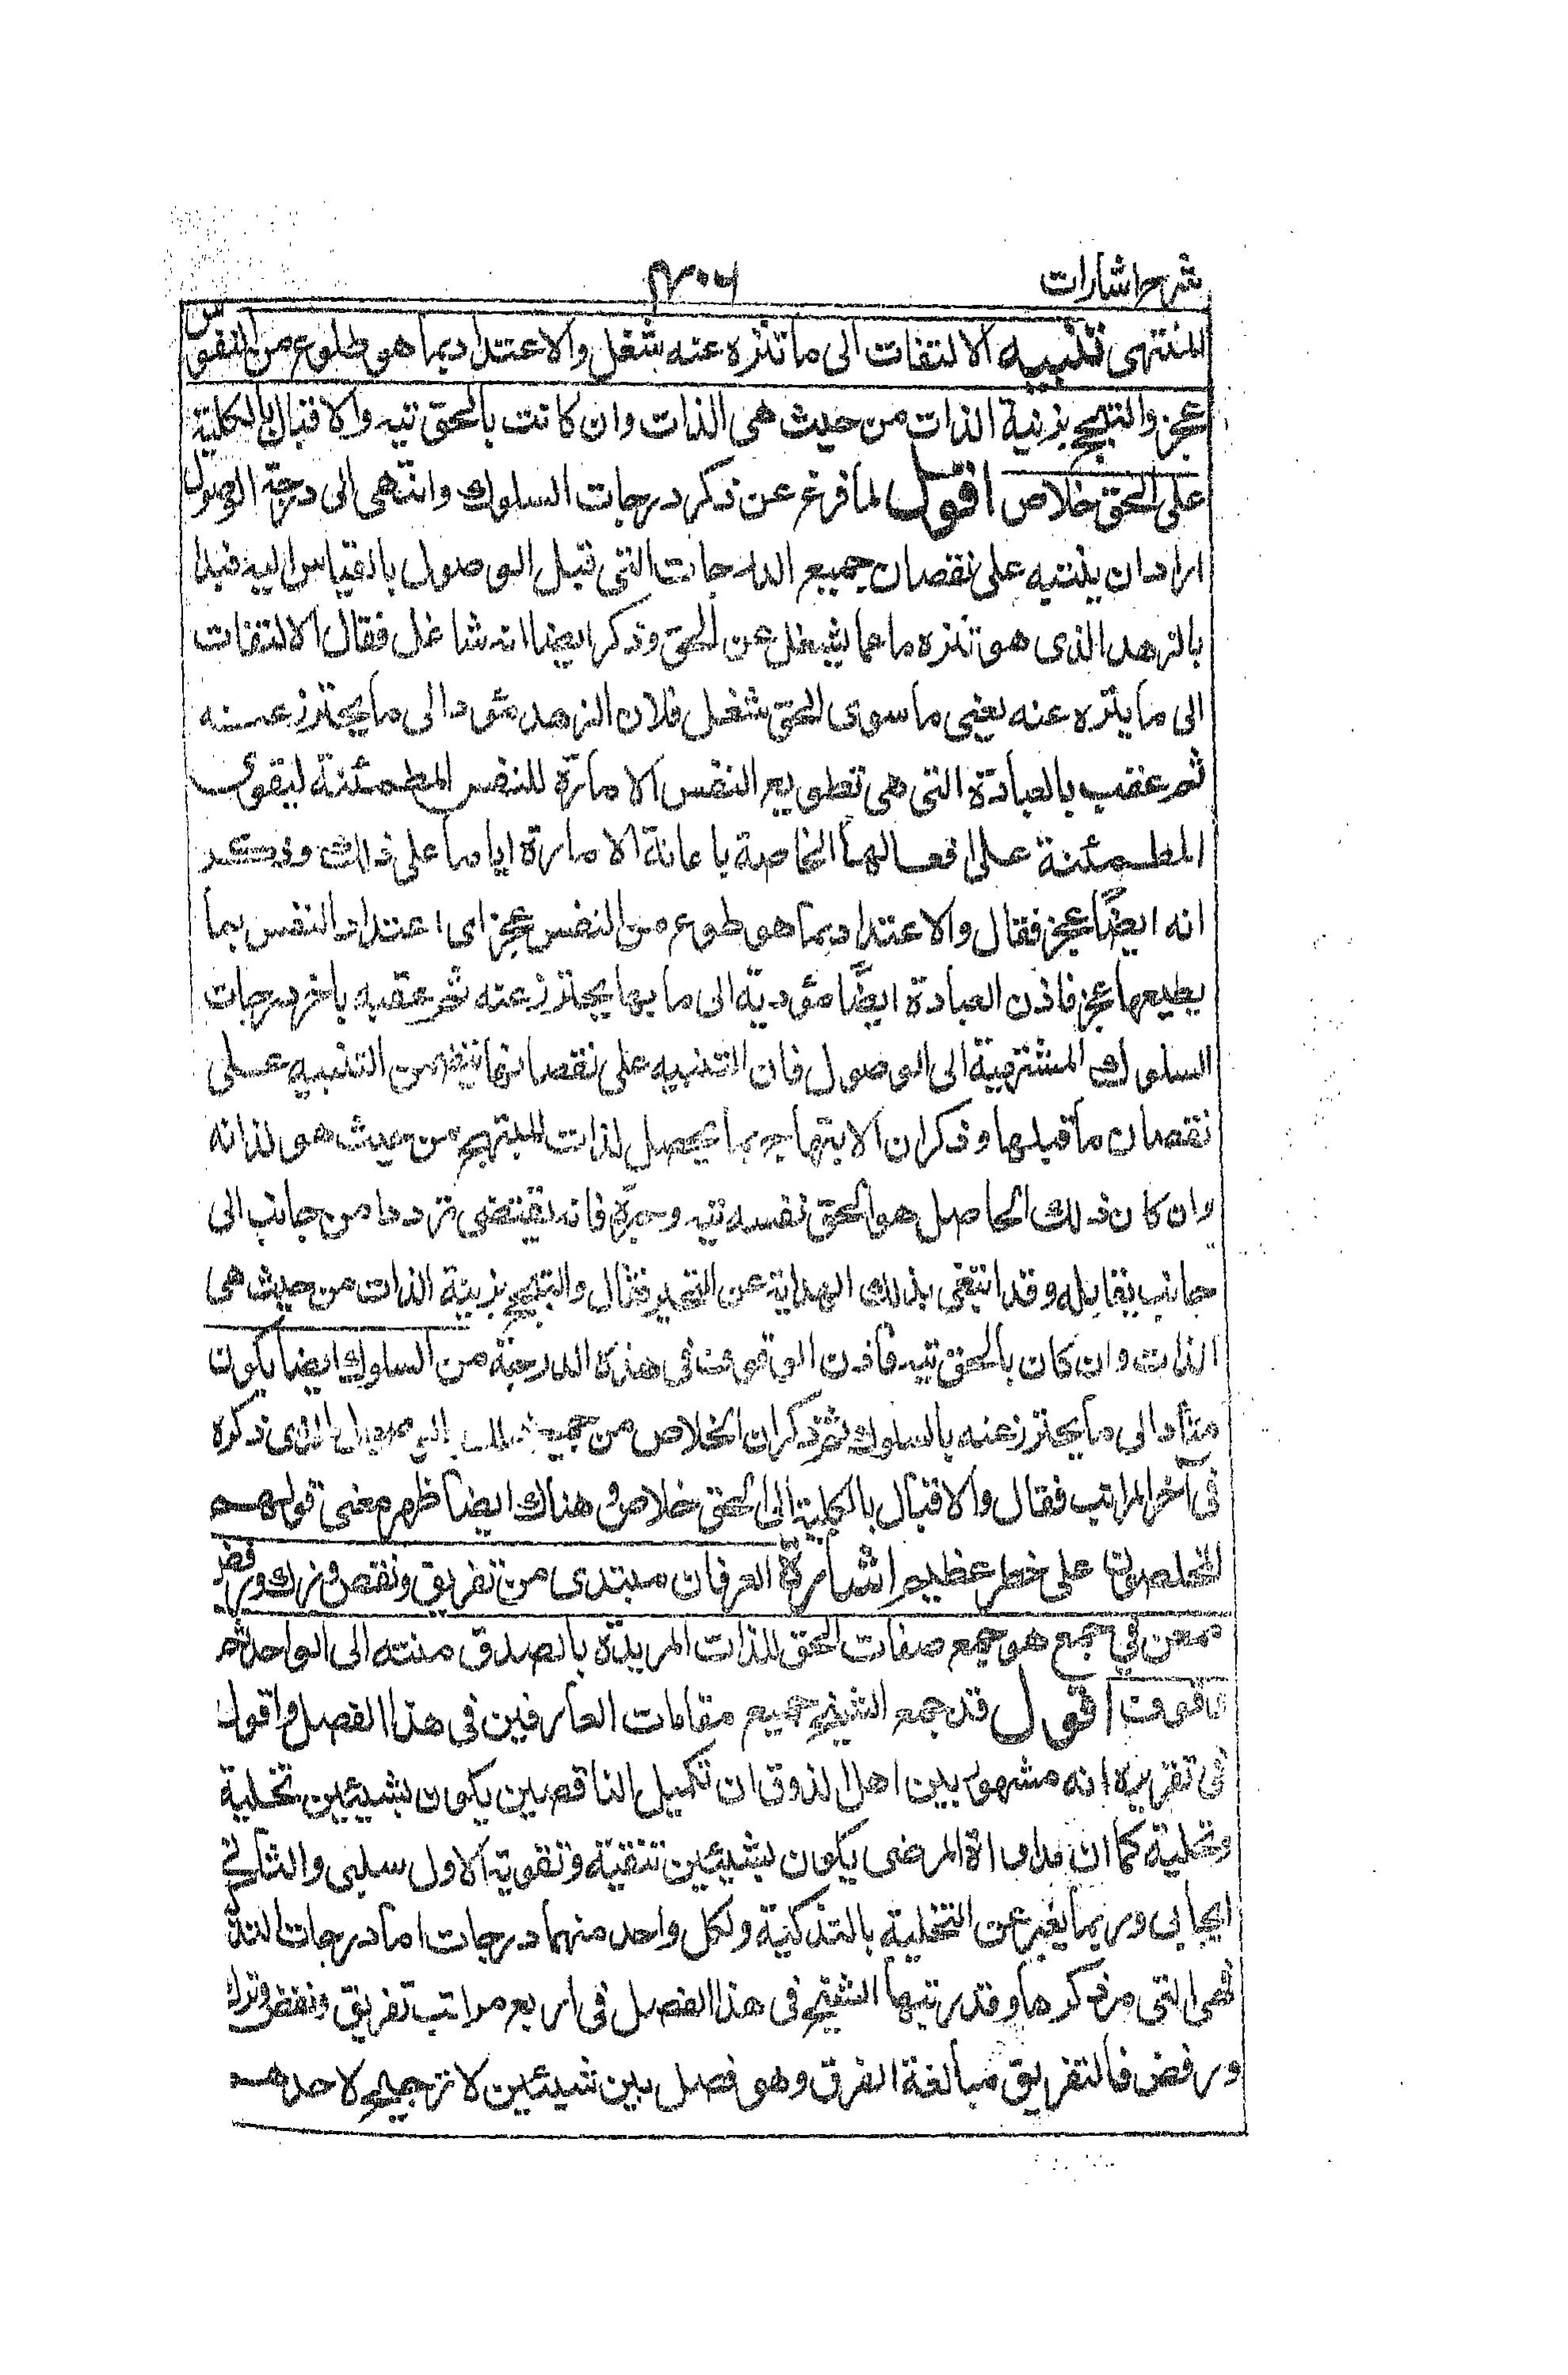 شرح اشارات
المنتهى تنبيه الالتفات الى ما تنزه عنه شغل والاعتداد بما هو طلوع من النفوس
عجز والتبجح بزينة الذات من حيث هى الذات وان كانت بالحق تيه والاقبال بالكلية
على الحق خلاص اقول لما فرغ عن ذكر درجات السلوك وانتهى الى درجة الوصول
اراد ان ينبه على نقصان جميع الدرجات التى قبل الوصول بالقياس اليه فبدا
بالزهد الذى هو تنزه ما عما يشغل عن الحق وذكر ايضا انه شاغل فقال الالتفات
الى ما ينزه عنه يعنى ما سوى الحق شغل فلان الزهد مئود الى ما يحترز عنه
ثم عقب بالعبادة التى هى تطويع النفس الامارة للنفس المطمئنة ليقوى
المطمئنة على افعالها الخاصة باعانة الامارة اياها على ذلك وذكر
انه ايضًا عجز فقال والاعتداد بما هو طوع من النفس عجز اى اعتداد النفس بما
يطيعها عجز فاذن العبادة ايضًا مؤدية الى ما بها يحترز عنه ثم عقبه باخر درجات
السلوك المنتهية الى الوصول فان التنبيه على نقصانها يتضمن التنبيه على
نقصان ما قبلها وذكر ان الابتهاج بما يحصل لذات المبتهج من حيث هو لذاته
وان كان ذلك الحاصل هو الحق نفسه تيه وحيرة فانه يقتضى ترددا من جانب الى
جانب يقابله وقد ابتغى بذلك الهداية عن التحير فقال والتبجح بزينة الذات من حيث هى
الذات وان كان بالحق تيه فاذن الوقوف فى هذه الدرجة من السلوك ايضا يكون
متأد الى ما يحترز عنه بالسلوك ثم ذكر ان الخلاص من جميع الوصول الذى ذكره
فى آخر المراتب فقال والاقبال بالكلية الى الحق خلاص وهناك ايضا ظهر معنى قولهم
المخلصون على خطر عظيم اشارة العرفان مبتدى من تفريق ونقص وترك ورفض
ممعن في جمع هو جمع صفات الحق للذات المريدة بالصدق منته الى الواحد ثم
وقوف اقول قد جمع الشيخ جميع مقامات العارفين فى هذا الفصل واقول
فى تقريره انه مشهور بين اهل الذوق ان تكميل الناقصين يكون بشيئين تخلية
وتحلية كما ان مداواة المرضى يكون بشيئين تنقية وتقوية الاول سلبى والثانى
ايجابى وربما يعبر عن التخلية بالتذكية ولكل واحد منهما درجات اما درجات التذ
فهى التى مر ذكرها وقد رتبها الشيخ فى هذا الفصل فى اربع مراتب تفريق ونفض وترك
ورفض فالتفريق مبالغة الفرق وهو فصل بين شيئين لا ترجيح لاحدهـ